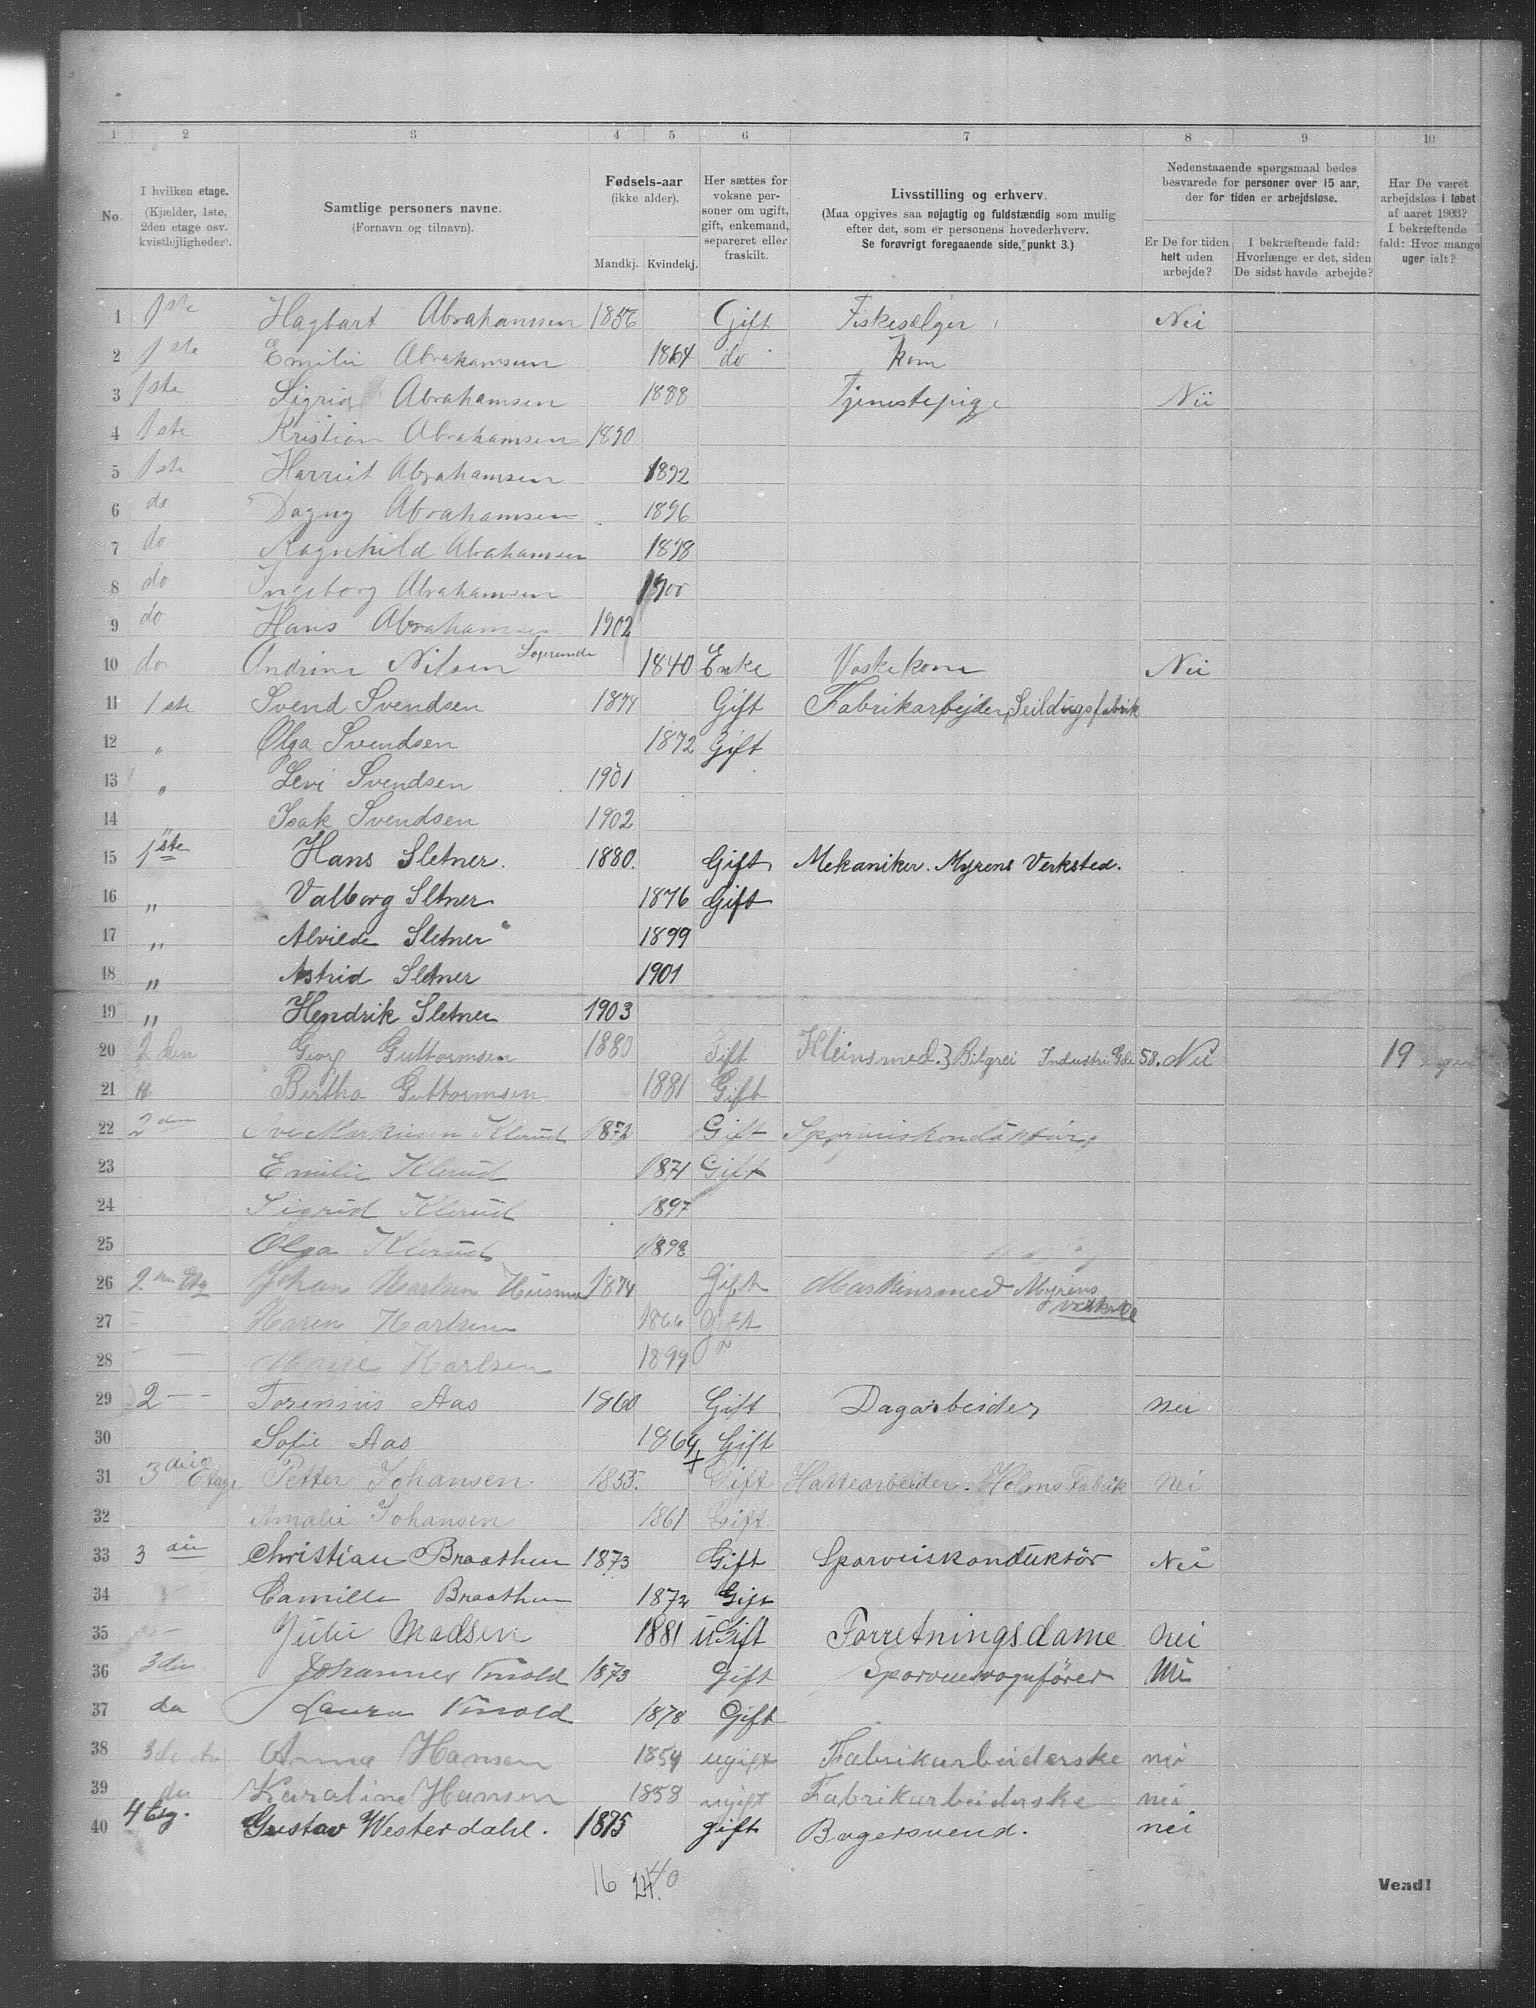 1 2 3 4 5 6 7 8 9 10
No.
I hvilken etage.
(Kjælder, 1ste,
2den etage osv.
kvistlejligheder).
Samtlige personers navne.
(Fornavn og tilnavn).
Fødsels-aar
(ikke alder).
Mandkj. Kvindekj.
Her sættes for
voksne per-
soner om ugift,
gift, enkemand,
separeret eller
fraskilt.
Livsstilling og erhverv.
(Maa opgives saa nøjagtig og fuldstændig som mulig
efter det, som er personens hovederhverv.
Se forøvrigt foregaaende side, punkt 3.)
Nedenstaaende spørgsmaal bedes
besvarede for personer over 15 aar,
der for tiden er arbejdsløse.
Er De for tiden
helt uden
arbejde?
I bekræftende fald:
Hvorlænge er det, siden
De sidst havde arbejde?
Har De været
arbejdsløs i løbet
af aaret 1903?
I bekræftende
fald: Hvor mange
uger ialt?
1 1ste Hagbart Abrahamsen 1856 Gift Fiskesælger Nei
2 1ste Emilie Abrahamsen 1864 do kone
3 1ste Sigrid Abrahamsen 1888 Tjenestepige Nei
4 1ste Kristian Abrahamsen 1890
5 1ste Harriet Abrahamsen 1892
6 do Dagny Abrahamsen 1896
7 do Ragnhild Abrahamsen 1898
8 do Ingeborg Abrahamsen 1900
9 do Hans Abrahamsen 1902
10 do Andrine Nilsen Logerende 1840 Enke Vaskekone Nei
11 1ste Svend Svendsen 1874 Gift Fabrikarbejder, Seildugsfabrik
12 " Olga Svendsen 1872 Gift
13 " Levi Svendsen 1901
14 Isak Svendsen 1902
15 1ste Hans Sletner. 1880. Gift Mekaniker. Myrens Verksted.
16 " Valborg Sletner 1876 Gift
17 " Alvilde Sletner 1899
18 " Astrid Sletner 1901
19 " Hendrik Sletner 1903
20 2den Georg Guttormsen 1880 Gift Kleinsmed. Industri Gde 58. Nei 19
21 " Bertha Guttormsen 1881 Gift
22 2den Klerud 1872 Gift Sporveiskonduktör
23 Emilie Klerud 1871 Gift
24 Sigrid Klerud 1897
25 Olga Klerud 1898
26 2den Etg Johan Karlsen 1874 Gift Maskinsmed Myrens
Verksted
27 Karen Karlsen 1866 Gift
28 Karlsen 1899
29 2 — Torensius Aas 1860 Gift Dagarbeider Nei
30 Sofie Aas 1864 Gift
31 3die Etage Petter Johansen 1855. Gift Hattearbeider. Holms Fabrik Nei
32 Amalie Johansen 1861 Gift.
33 3die Christian Braathen 1873 Gift Sporveiskonduktör Nei
34 Camilla Braathen 1872 Gift
35 Julie Madsen 1881 uGift Forretningsdame Nei
36 3die Johannes 1873 Gift Sporveisvognfører Nei
37 do Laura 1878 Gift
38 3de Anna Hansen 1854 ugift Fabrikarbeiderske nei
39 do Karoline Hansen 1858 ugift Fabrikarbeiderske nei
40 4 Etg. Gustav Westerdahl. 1875 gift Bagersvend. nei
16 24 40
Vend!